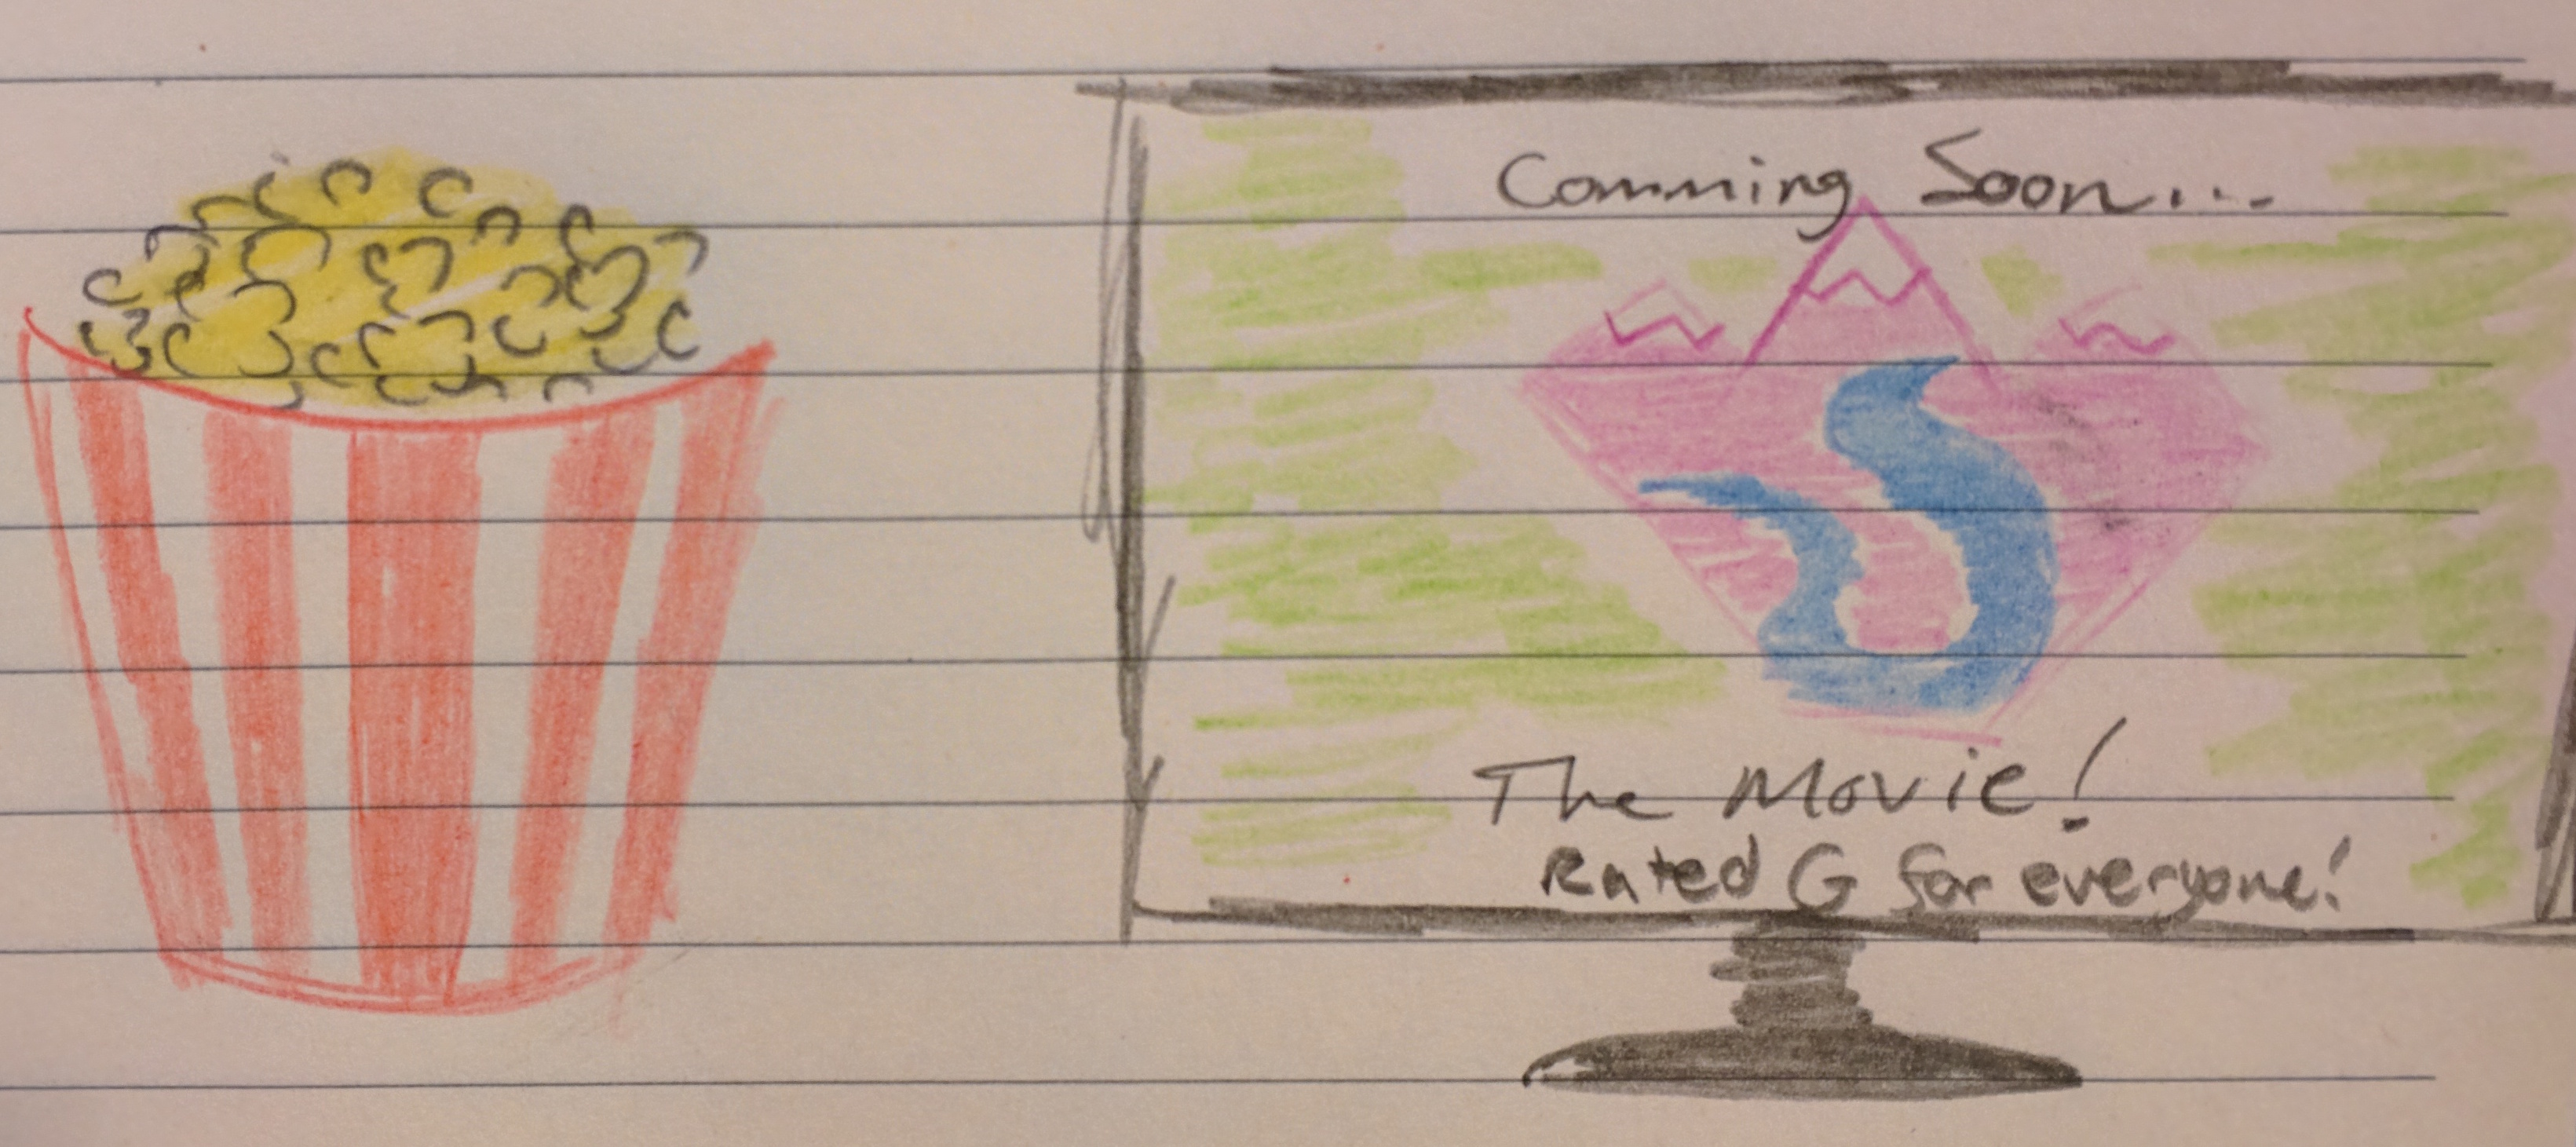 Comming Soon...
The Movie!
Rated G for everyone!